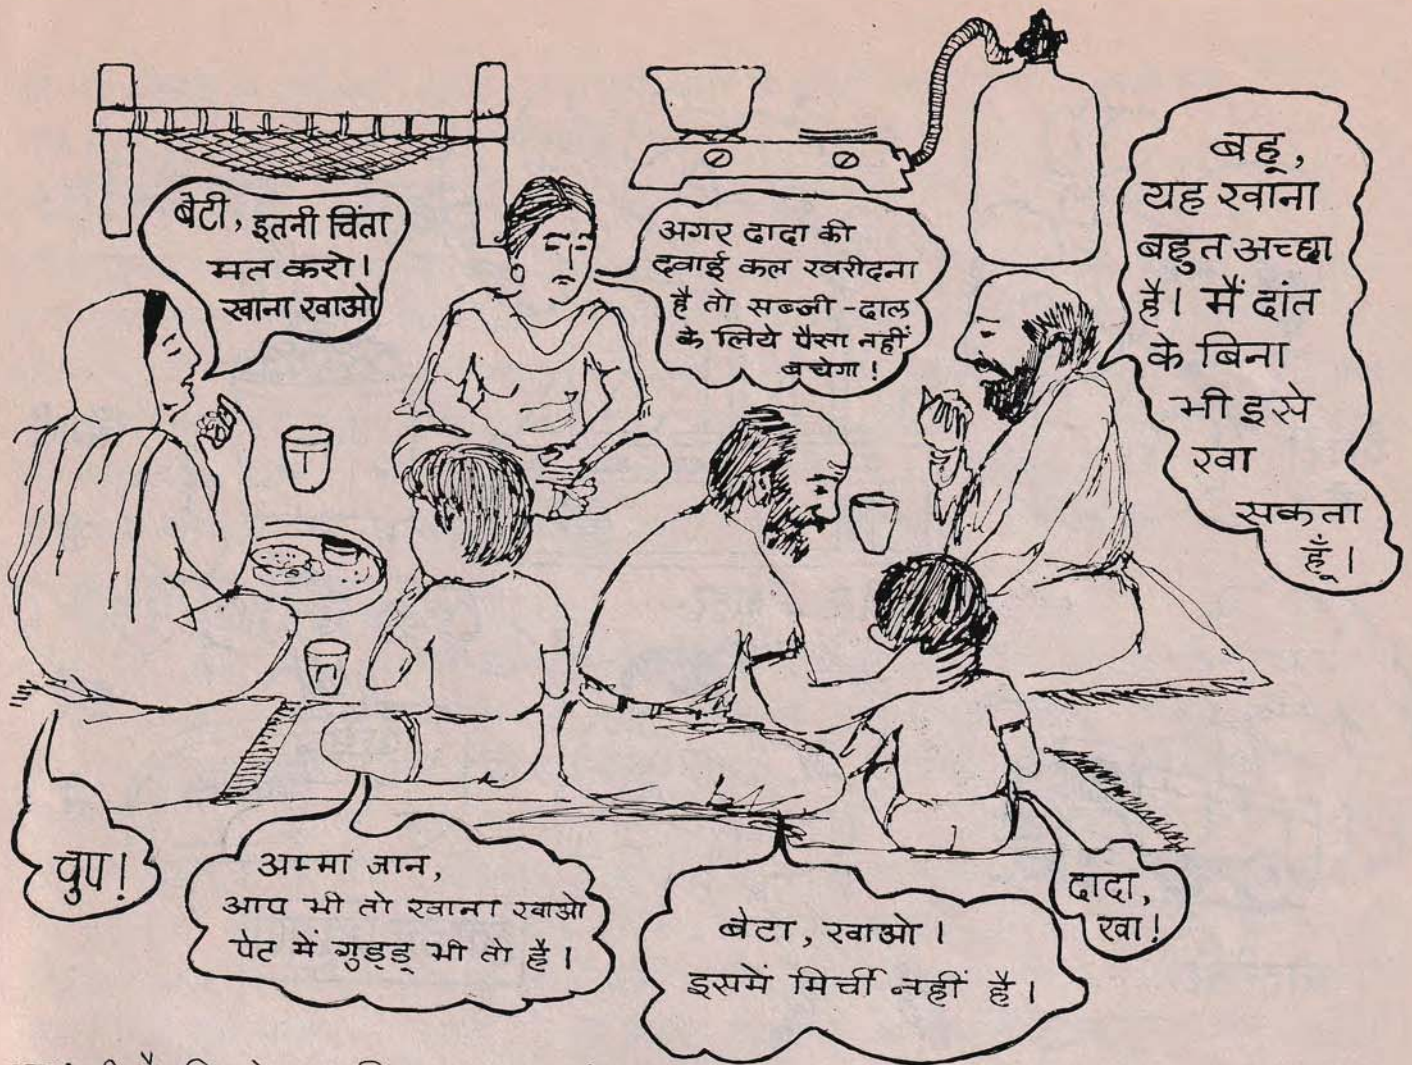 बेटी, इतनी चिंता
मत करो।
खाना खाओ
अगर दादा की
दवाई कल खरीदना
है तो सब्जी-दाल
के लिये पैसा नहीं
बचेगा!
बहू,
यह खाना
बहुत अच्छा
है। मैं दांत
के बिना
भी इसे
खा
सकता
हूँ।
चुप!
अम्मा जान,
आप भी तो खाना खाओ
पेट में गुड्डू भी तो है।
बेटा, खाओ।
इसमें मिर्ची नहीं है।
दादा,
खा!